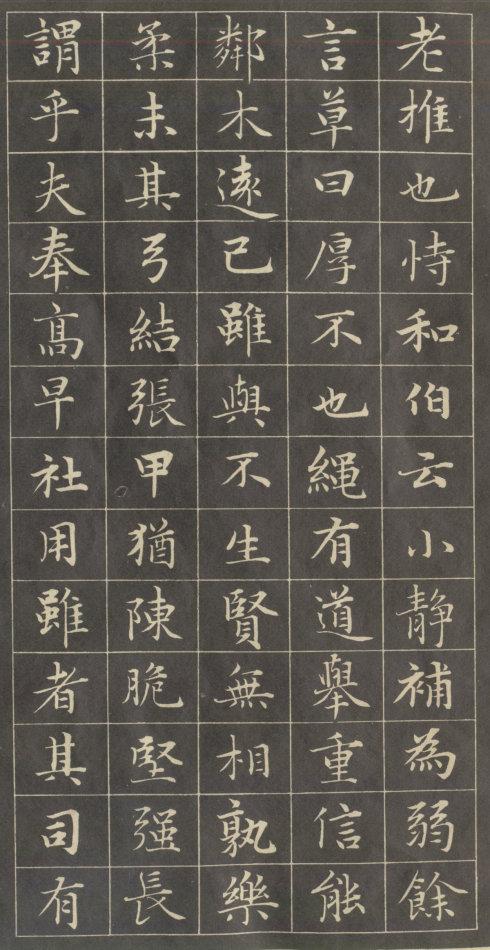 老推也恃和伯云小静補為弱餘
言草曰厚不也繩有道舉重信能
鄰木遠已雖與不生賢無相孰樂
柔未其弓結張甲猶陳脆堅强長
謂乎夫奉髙早社用雖者其司有